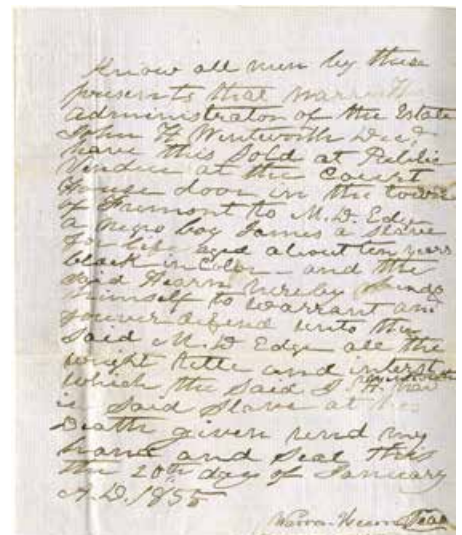 Know all men by these
presents that Warren
administrator of the Estate
John H Wentworth Decd
have this Sold at Public
Vendue at the Court
House door in the town
of Fremont to M. D. Edge
a negro boy James a slave
for life aged about ten years
black in Color - and the
said Hearn hereby binds
himself to warrant and
forever defend unto the
Said M. D Edge all the
wright title and interst
which the said J H
in said slave at his
Death given und my
hand and Seal this
the 20th day of January
A.D. 1855
Warren Hearn Seal